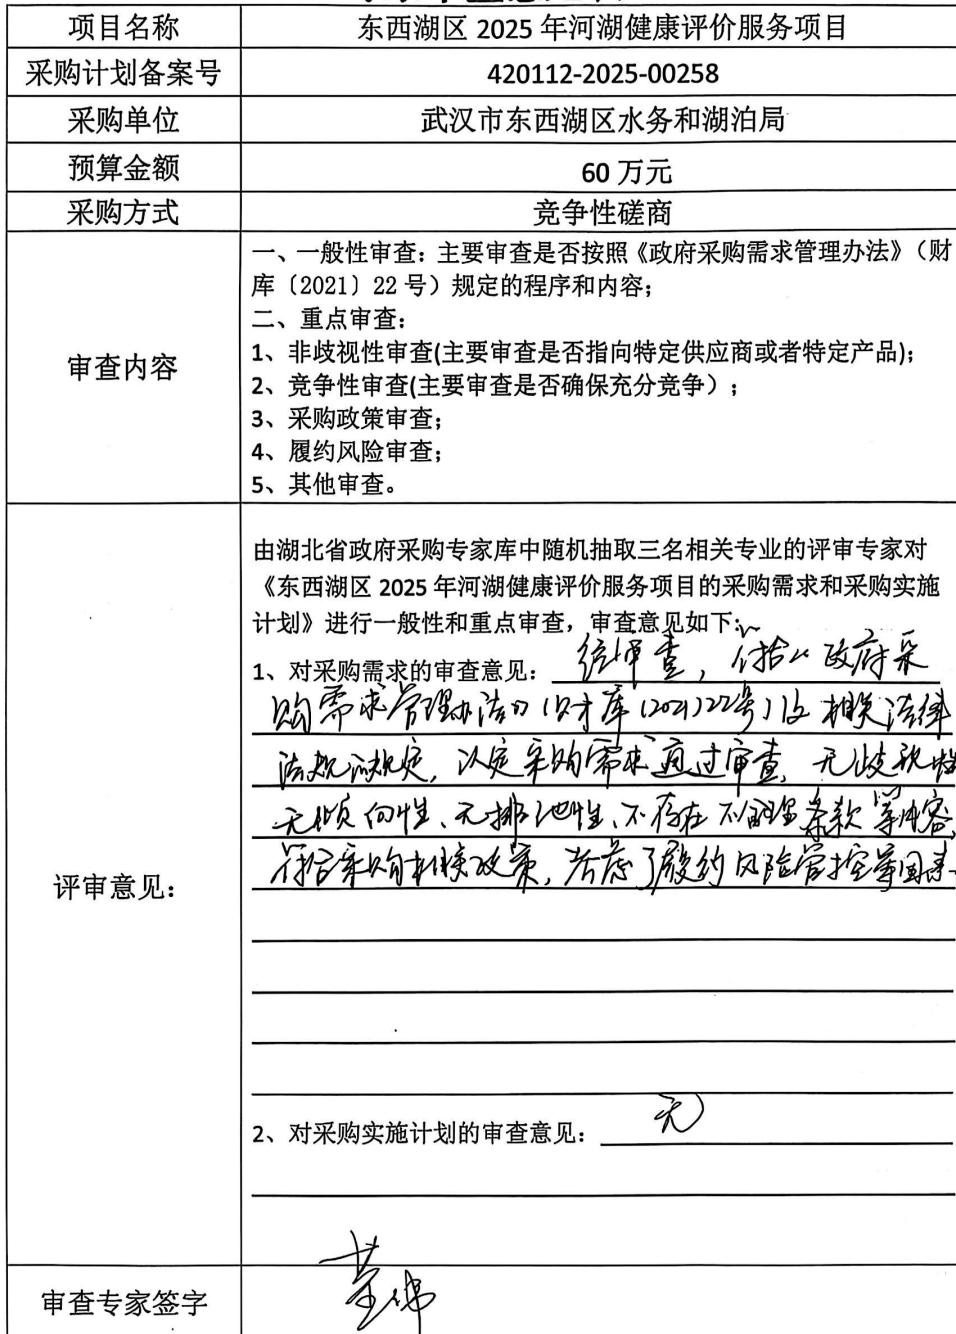 项目名称 东西湖区 2025 年河湖健康评价服务项目
采购计划备案号 420112-2025-00258
采购单位 武汉市东西湖区水务和湖泊局
预算金额 60 万元
采购方式 竞争性磋商
审查内容
一、一般性审查：主要审查是否按照《政府采购需求管理办法》（财
库〔2021〕22 号）规定的程序和内容；
二、重点审查：
1、非歧视性审查(主要审查是否指向特定供应商或者特定产品)；
2、竞争性审查(主要审查是否确保充分竞争）；
3、采购政策审查；
4、履约风险审查；
5、其他审查。
评审意见：
由湖北省政府采购专家库中随机抽取三名相关专业的评审专家对
《东西湖区 2025 年河湖健康评价服务项目的采购需求和采购实施
计划》进行一般性和重点审查，审查意见如下：
1、对采购需求的审查意见：经审查，符合《政府采
购需求管理办法》（财库（2021）22号）及相关法律
法规的规定，认定采购需求通过审查，无歧视性
无倾向性、无排他性、不存在不合理条款等内容，
符合采购相关政策，考虑了履约风险管控等因素。
2、对采购实施计划的审查意见：无
审查专家签字